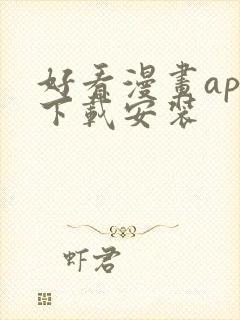 好看漫畫ap
下載安裝
虾君